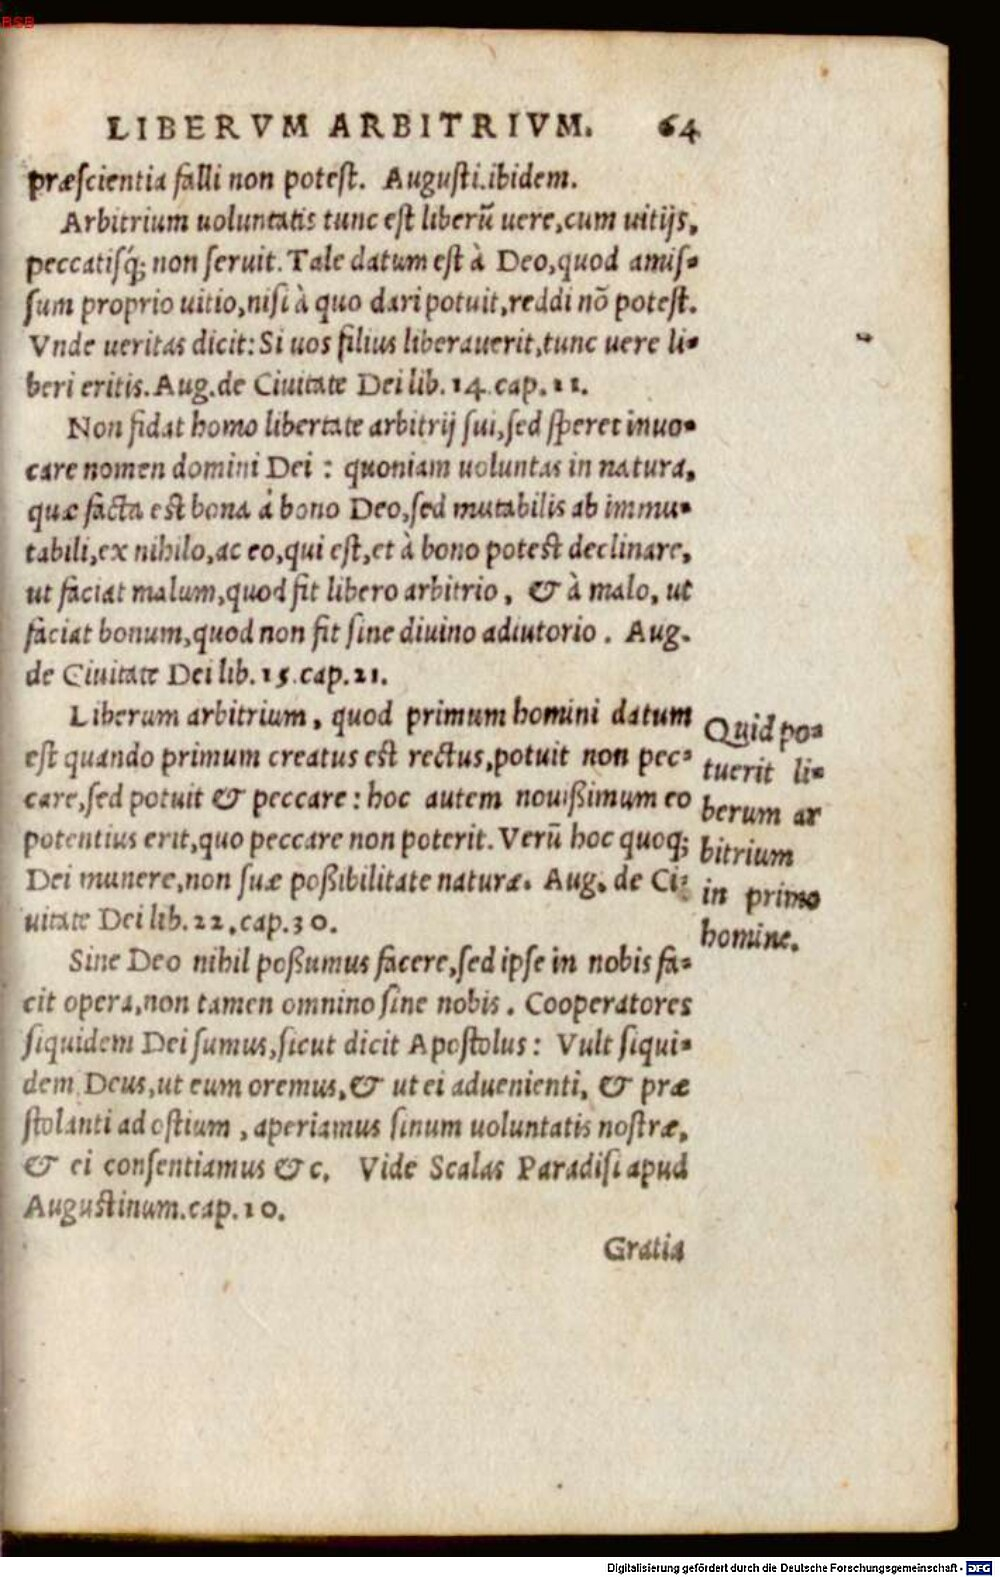 BSB
LIBERVM ARBITRIVM. 64
præscientia falli non potest. Augusti.ibidem.
Arbitrium uoluntatis tunc est liberū uere,cum uitijs,
peccatisq́; non seruit. Tale datum est à Deo,quod amis-
sum proprio uitio,nisi à quo dari potuit,reddi nō potest.
Vnde ueritas dicit: Si uos filius liberauerit,tunc uere li-
beri eritis. Aug.de Ciuitate Dei lib. 14.cap.11.
Non fidat homo libertate arbitrij sui,sed speret inuo-
care nomen domini Dei : quoniam uoluntas in natura,
quæ facta est bona à bono Deo,sed mutabilis ab immu-
tabili,ex nihilo,ac eo,qui est,et à bono potest declinare,
ut faciat malum,quod fit libero arbitrio, & à malo, ut
faciat bonum,quod non fit sine diuino adiutorio. Aug.
de Ciuitate Dei lib. 15.cap.21.
Liberum arbitrium, quod primum homini datum
est quando primum creatus est rectus,potuit non pec-
care,sed potuit & peccare: hoc autem nouißimum eo
potentius erit,quo peccare non poterit. Verū hoc quoq;
Dei munere,non suæ poßibilitate naturæ. Aug. de Ci-
uitate Dei lib.22.cap.30.
Quid po-
tuerit li-
berum ar
bitrium
in primo
homine.
Sine Deo nihil poßumus facere,sed ipse in nobis fa-
cit opera,non tamen omnino sine nobis. Cooperatores
siquidem Dei sumus,sicut dicit Apostolus: Vult siqui-
dem Deus,ut eum oremus,& ut ei aduenienti, & præ
stolanti ad ostium, aperiamus sinum uoluntatis nostræ,
& ei consentiamus &c. Vide Scalas Paradisi apud
Augustinum.cap.10.
Gratia
Digitalisierung gefördert durch die Deutsche Forschungsgemeinschaft - DFG